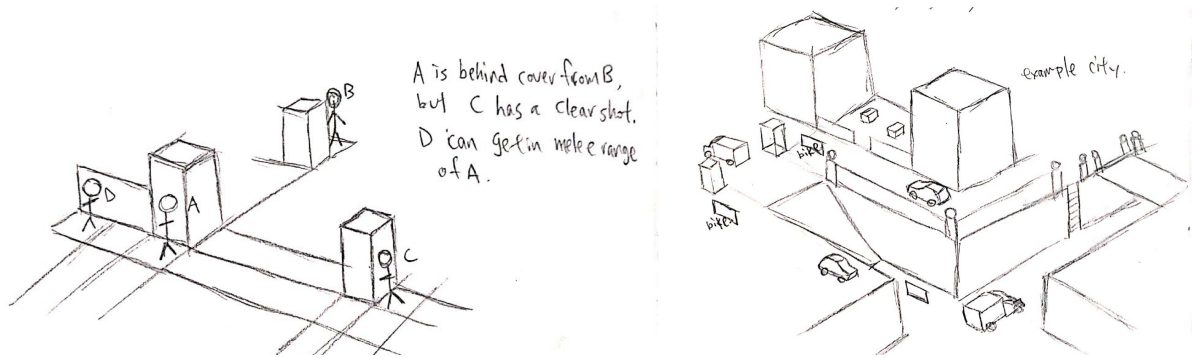 A is behind cover from B,
but C has a clear shot.
D can get in melee range
of A.
B
D
A
C
example city.
bike
bike